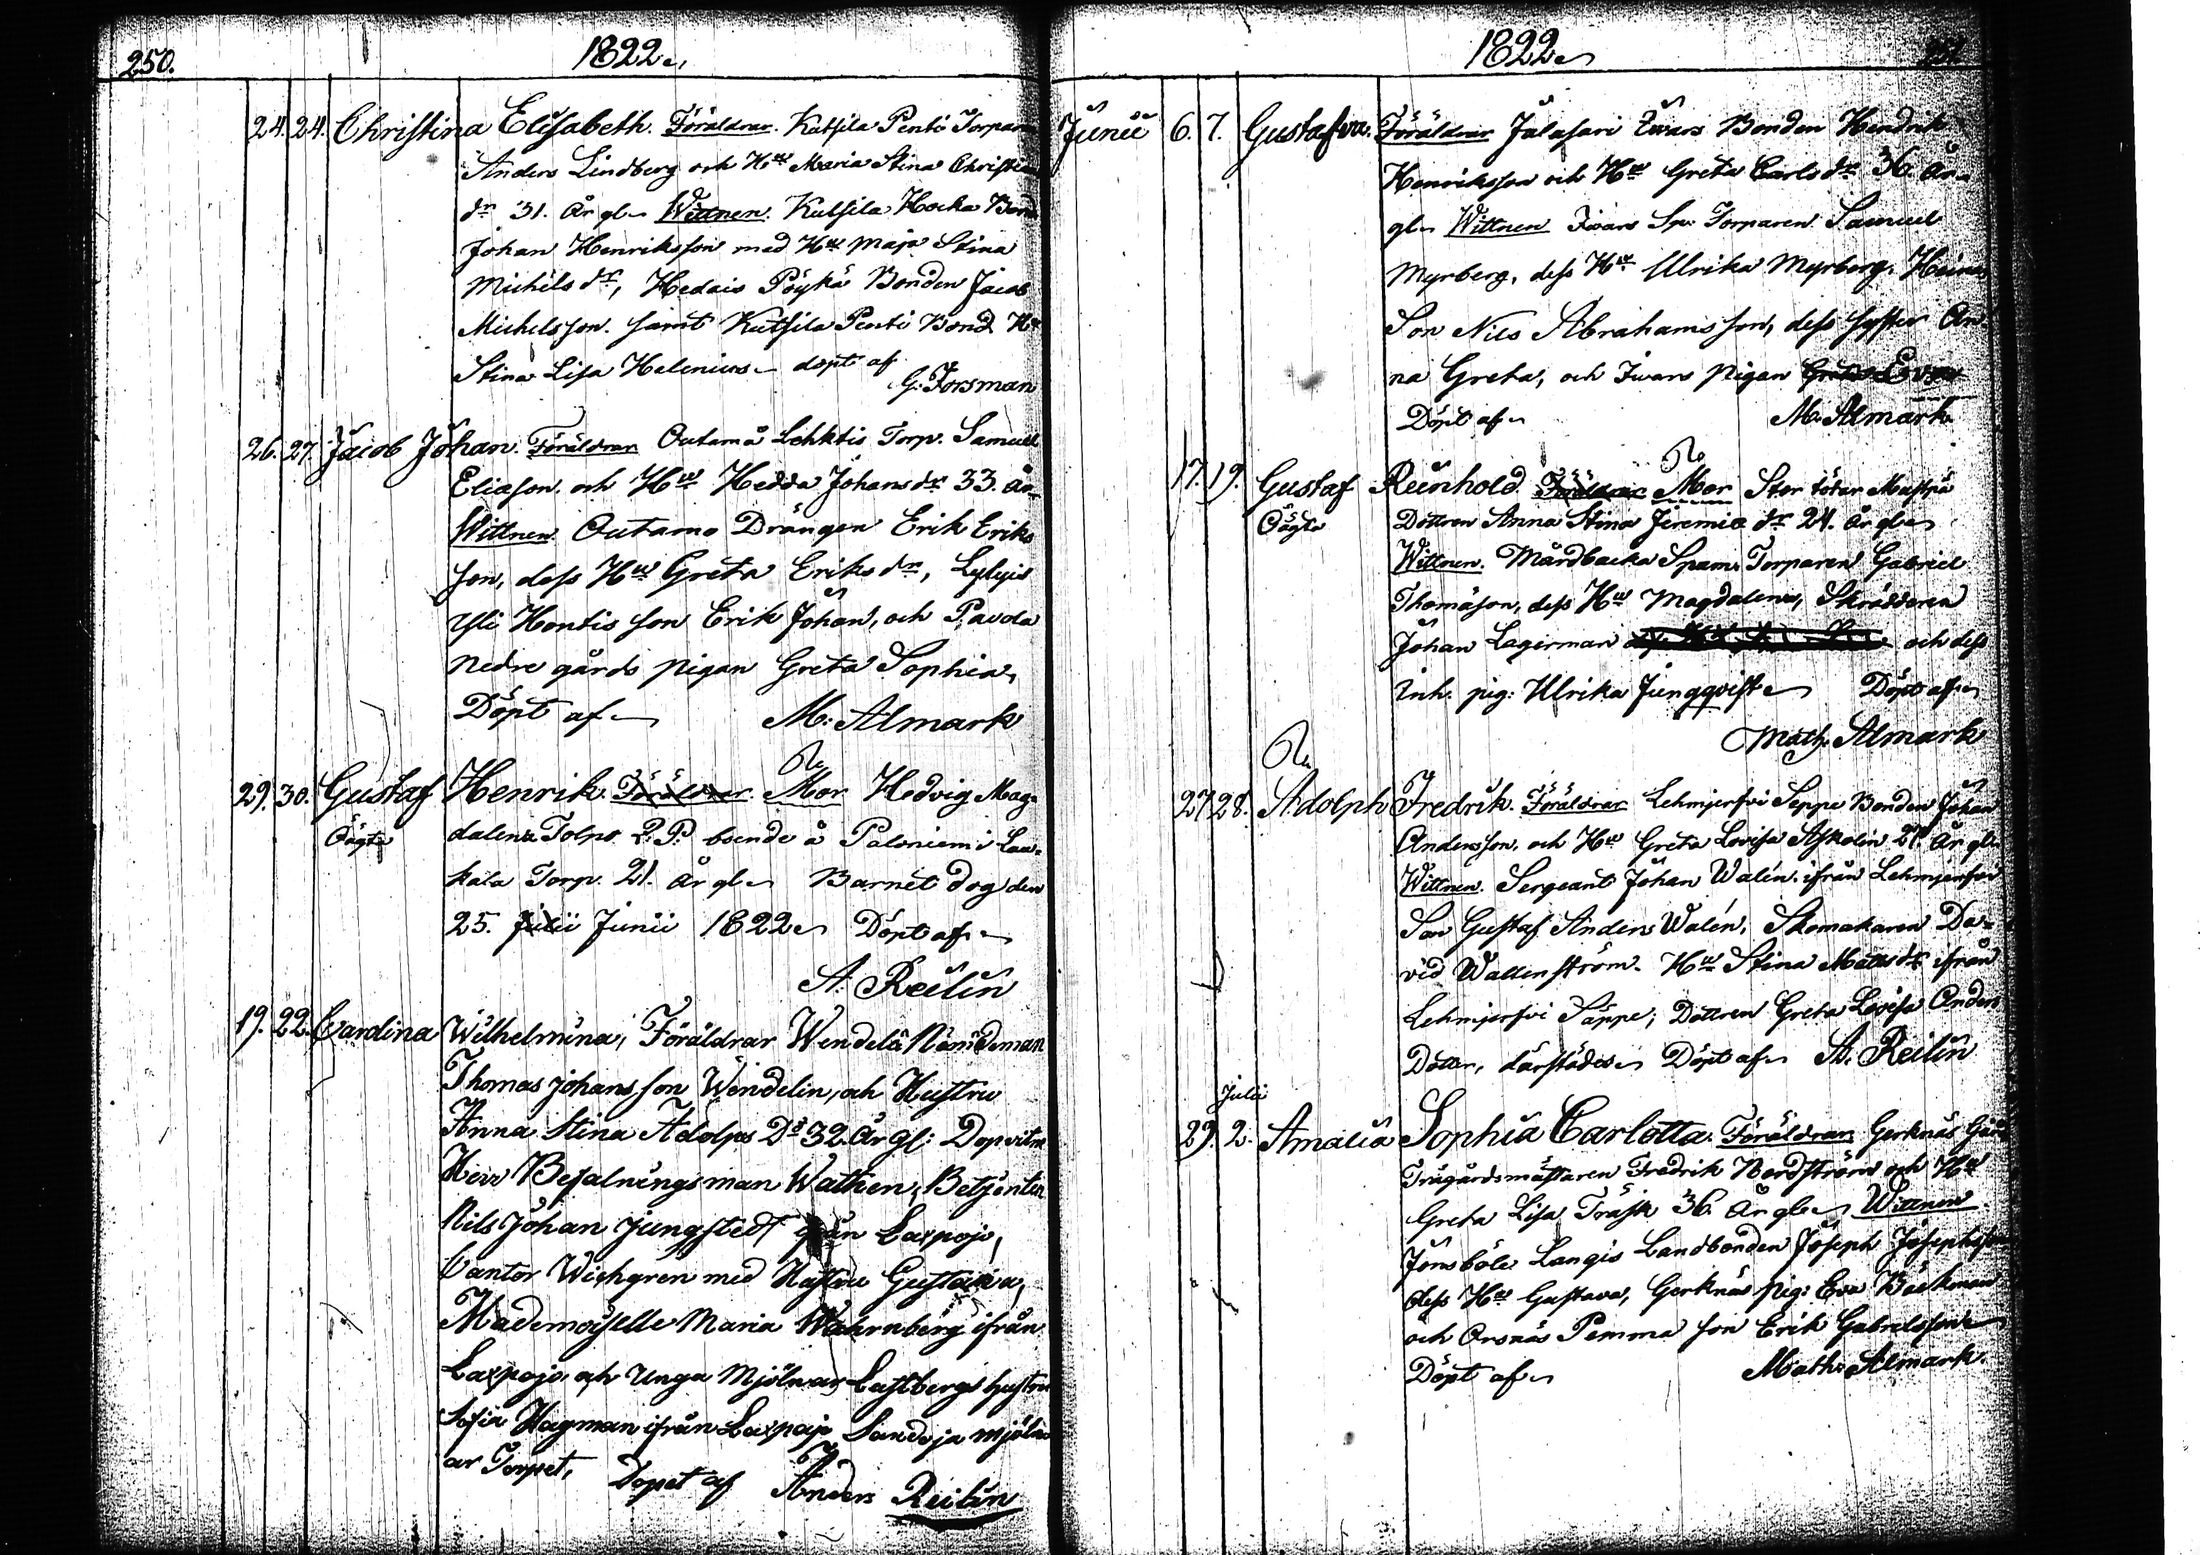 250.
1822.
24. 24. Christina Elisabeth. Föräldrar. Kutsila Penti Torparen
Anders Lindberg och Hu Maria Stina Christians
dr 31. År gl. Wittnen. Kutsila Hocka Bond
Johan Henriksson med Hu Maja Stina
Michils dr, Hedais Pöykä Bonden Jacob
Michelsson. samt Kutsila Penti Bond. Hu
Stina Lisa Helenius döpt af
G. Forsman
26. 27. Jacob Johan. Föräldrar Outamå Lehktis Torp. Samuel
Eliason och Hu Hedda Johans dr 33. År
Wittnen. Outamo Drängen Erik Eriks
son, dess Hu Greta Eriks dr, Lylyis
Yli Hontis son Erik Johan, och Pavola
nedre gårds pigan Greta Sophia
Döpt af M. Almark
29. 30. Gustaf Henrik. Föräldrar. Mor Hedvig Mag-
Oägta dalena Tolpo P. P. boende å Paloniemi Lau-
kala Torp. 21. År gl. Barnet dog den
25. Julii Junii 1822 Döpt af
A. Reilin
19. 22. Carolina Wilhelmina, Föräldrar Wendelä Nämdeman
Thomas Johansson Wendelin, och Hustru
Anna Stina Adolps Dr 32. År gl: Dopvitn
Herr Befalningsman Wathen, Betjenten
Nils Johan Jungstedt från Laxpojo,
Cantor Wichgren med Hustru Gustava,
Mademoiselle Maria Wahrnberg ifrån
Laxpojo och Unga Mjölnar Lastbergs hustru
Sofia Hagman ifrån Laxpojo Sandoja mjöln
ar Torpet, Döpet af Anders Reilin
1822
251
Junii 6. 7. Gustafva. Föräldrar Jalasari Iwars Bonden Hendrik
Henriksson och Hu Greta Carls dr 36. År
gl. Wittnen Iwars Sp. Torparen Samuel
Myrberg, dess Hu Ulrika Myrberg,
Son Nils Abrahamsson, dess syster An-
na Greta, och Iwars Pigan Greta
Döpt af M. Almark
17. 19. Gustaf Reinhold. Föräldrar Mor Stor Mattfå
Oägta Dottren Anna Stina Jeremiæ dr 24. År gl.
Wittnen. Mårdbacka Spam. Torparen Gabriel
Thomason, dess Hu Magdalena, Skräddaren
Johan Lagerman och dess
Inh. pig: Ulrika Jungqvist Döpt af
Math. Almark
27. 28. Adolph Fredrik. Föräldrar Lehmjerfvi Seppe Bonden Johan
Andersson, och Hu Greta Lovisa Askolin 27. År gl.
Wittnen. Sergeant Johan Walin ifrån Lehmjerfvi
Son Gustaf Anders Walén, Skomakaren Da-
vid Wallenström. Hu Stina Matts dr ifrån
Lehmjerfvi Säppe, Dottren Greta Lovisa Anders
Dotter, därstädes Döpt af A. Reilin
Julii
29. 2. Amalia Sophia Carlotta. Föräldrar Gerknäs Gård
Trägårdsmästaren Fredrik Nordström och Hu
Greta Lisa Träsk 36. År gl. Wittnen
Jönsböle Langis Landbonden Joseph Josephsson
dess Hu Gustava, Gerknäs pig: Eva Bäckman
och Orsnäs Pemma son Erik Gabrielsson
Döpt af Math. Almark.